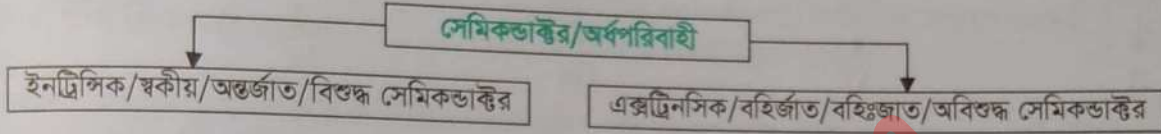 সেমিকন্ডাক্টর/অর্ধপরিবাহী
ইনট্রিন্সিক/স্বকীয়/অন্তর্জাত/বিশুদ্ধ সেমিকন্ডাক্টর
এক্সট্রিনসিক/বহির্জাত/বহিঃজাত/অবিশুদ্ধ সেমিকন্ডাক্টর